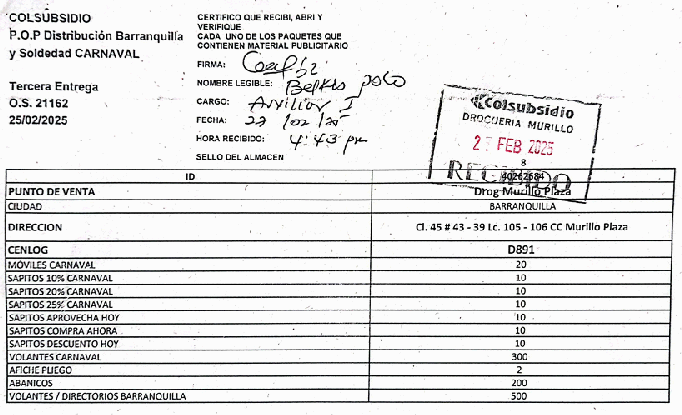 COLSUBSIDIO
P.O.P Distribución Barranquilla
y Soldedad CARNAVAL
Tercera Entrega
O.S. 21162
25/02/2025
CERTIFICO QUE RECIBI, ABRI Y
VERIFIQUE
CADA UNO DE LOS PAQUETES QUE
CONTIENEN MATERIAL PUBLICITARIO
FIRMA:
NOMBRE LEGIBLE: Belkis polo
CARGO: Auxiliar I
FECHA: 27/02/25
HORA RECIBIDO: 4:43 pm
SELLO DEL ALMACEN
Colsubsidio
DROGUERIA MURILLO
FEB 2025
8
RECIBIDO
ID 40262684
PUNTO DE VENTA Drug Murillo Plaza
CIUDAD BARRANQUILLA
DIRECCION Cl. 45 # 43 - 39 Lc. 105 - 106 CC Murillo Plaza
CENLOG D891
MOVILES CARNAVAL 20
SAPITOS 10% CARNAVAL 10
SAPITOS 20% CARNAVAL 10
SAPITOS 25% CARNAVAL 10
SAPITOS APROVECHA HOY 10
SAPITOS COMPRA AHORA 10
SAPITOS DESCUENTO HOY 10
VOLANTES CARNAVAL 300
AFICHE PLIEGO 2
ABANICOS 200
VOLANTES / DIRECTORIOS BARRANQUILLA 500